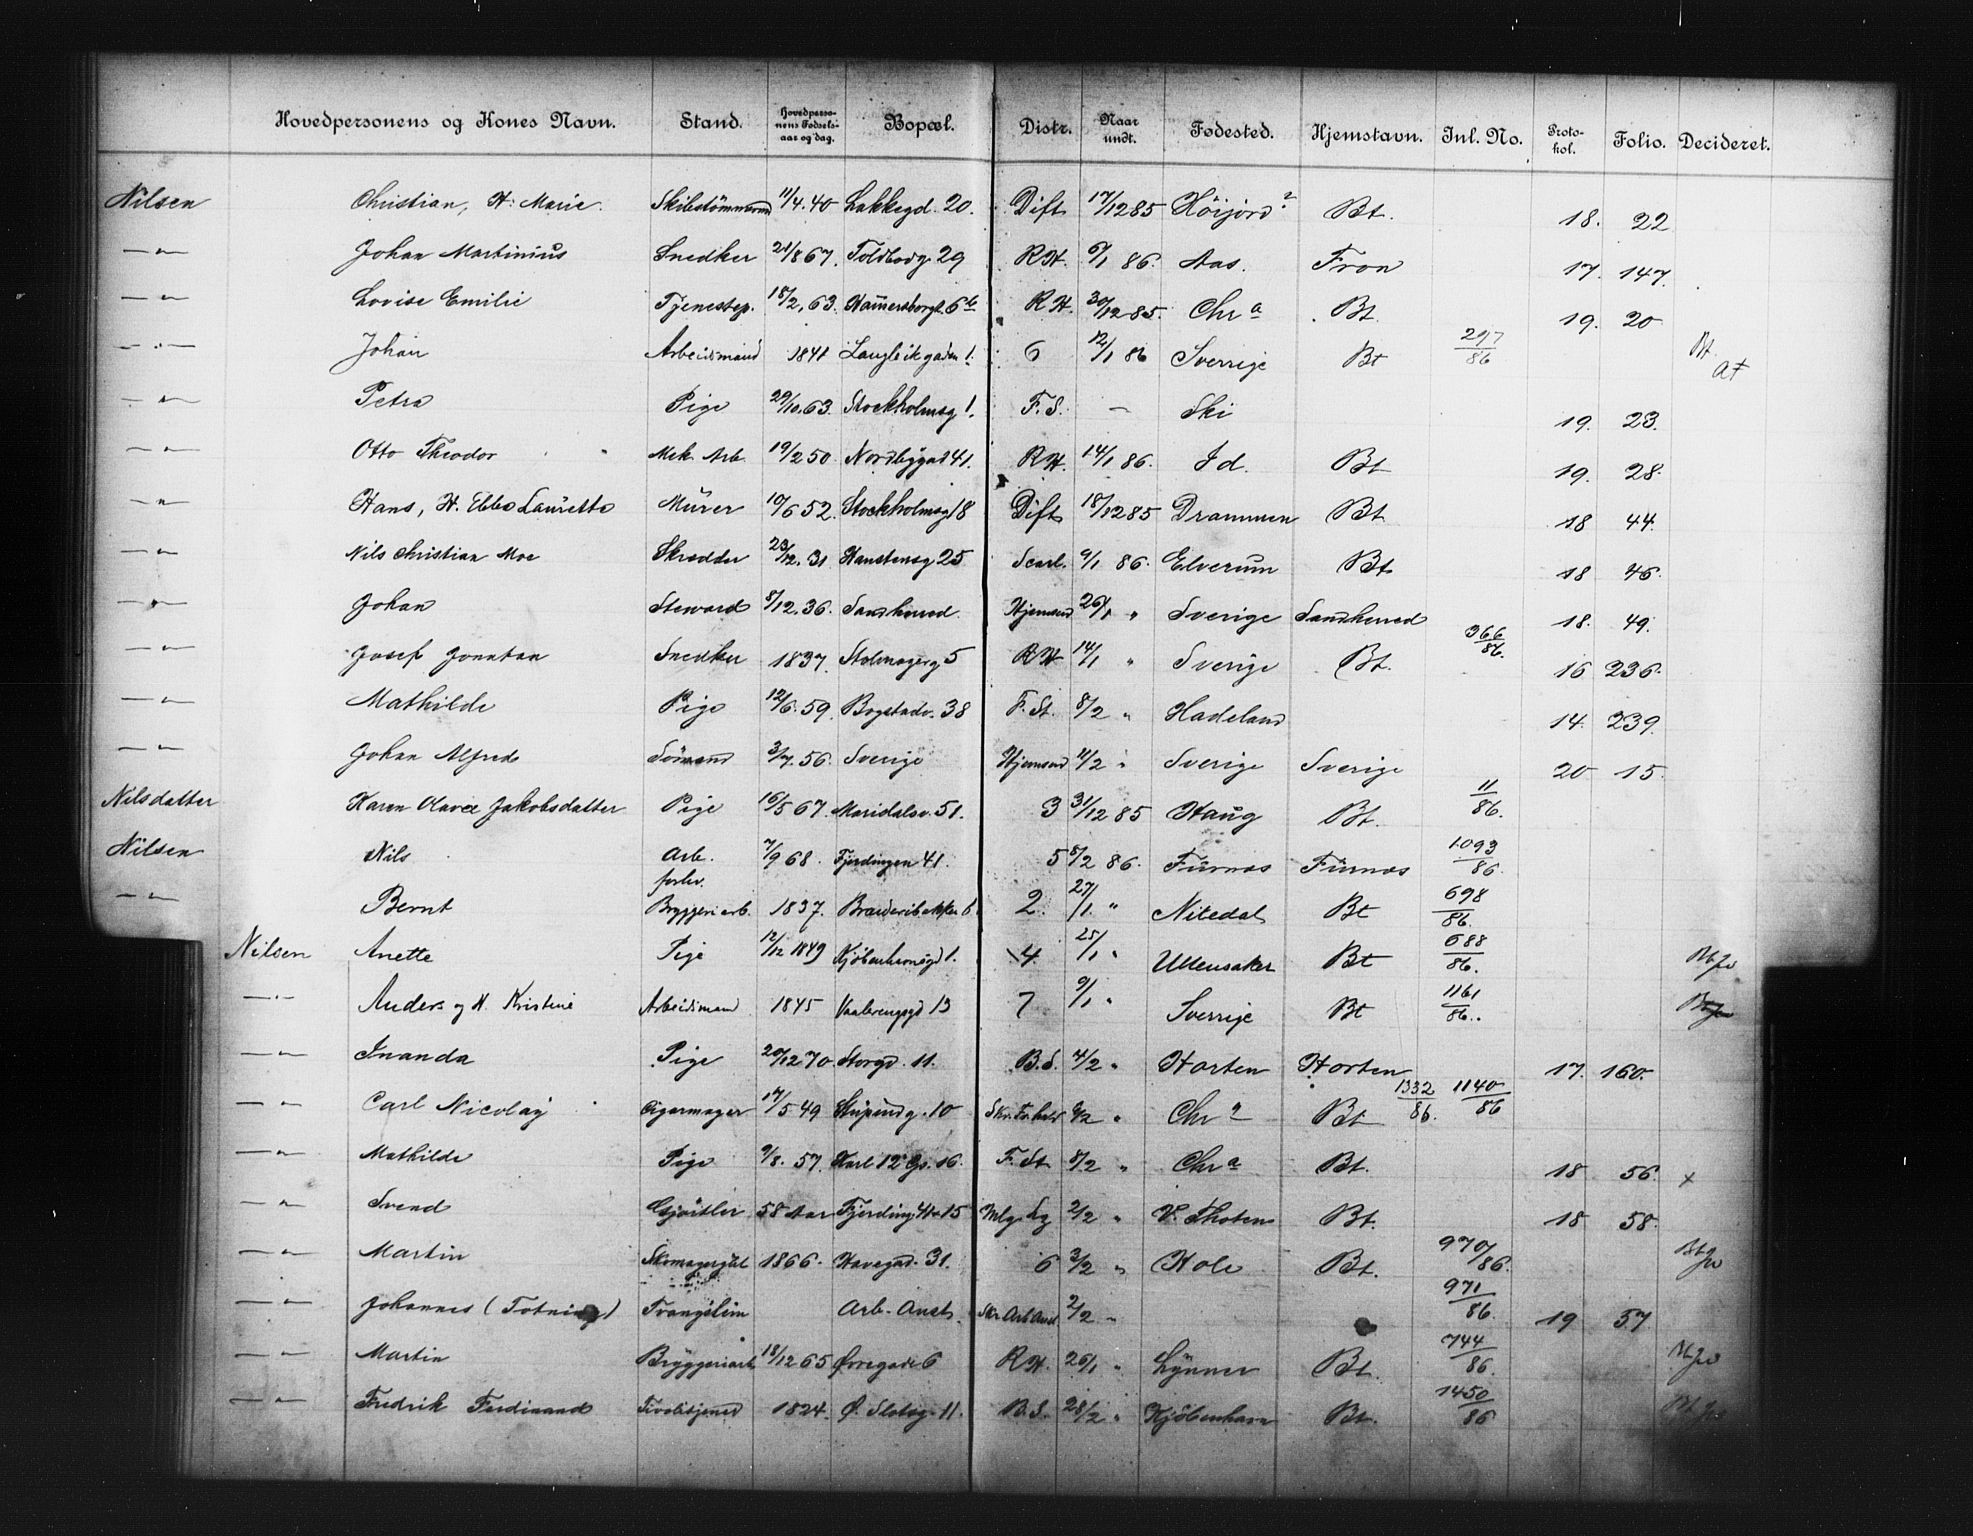 Hovedpersonens og Kones Navn. Stand. Hovedpersonens Fødselsaar og dag. Bopæl. Distr. Naar undt. Fødested. Hjemstavn. Inl. No. Protokol. Folio. Decideret.
Nilsen Christian, H. Marie. 11/4.40 Lakkegd. 20. Dift 17/12 85 Höijord? Bt. 18. 22
—"— Johan Martinius Snedker 21/8 67. Toldbodg. 29 R.H. 6/1 86. Aas. Fron 17. 147.
—"— Lovise Emilie Tjenestep. 18/2. 63. 6b R.H. 30/12 85. Chra Bt. 19. 20
—"— Johan Arbeidsmand 1841 Langleikgaden 1. 6 12/1 86 Sverrige Bt 297/86
—"— Petra Pige 29/10. 63. Stockholmsg 1. F.S. — Ski 19. 23.
—"— Otto Theodor Mek. Arb. 19/2 50. Nordbygad 41. R.H. 14/1 86. Id. Bt 19. 28.
—"— Hans, H. Ebba Lauretta Murer 10/6 52. Stockholmsg 18 Dift 18/12 85 Drammen Bt 18 44.
—"— Nils Christian Moe Skrædder 23/12. 31 25 9/1 86. Elverum Bt 18 46.
—"— Johan Steward 8/12. 36. Sandherred. Hjemsend 26/1 " Sverige Sandherred 18. 49.
—"— Josef Jonatan Snedker 1837. 5 R.H 14/1 " Sverige Bt. 366/86. 16 236.
—"— Mathilde Pige 12/6. 59. Bogstadv. 38 F. St. 8/2 " Hadeland 14. 239.
—"— Johan Alfred Sömand 3/7. 56. Sverige Hjemsend 4/2 " Sverige Sverige 20 15.
Nilsdatter Karen Olava Jakobsdatter Pige 16/5 67. Maridalsv. 51. 3 31/12 85 Haug Bt. 11/86.
Nilsen Nils Arb. forlov. 7/9 68. Fjerdingen 41. 5 8/2 86. Furnæs Furnæs 1093/86
—"— Bernt Bryggeriarb. 1837. 2. 27/1 " Nitedal Bt 698/86.
Nilsen Anette Pige 12/12 1849 Kjöbenhavnsgd 1. 4 25/1 " Ullensaker Bt 688/86.
—"— Anders og H. Kristine Arbeidsmand 1845 Vaalerengsgd 13 7 9/1 " Sverrige Bt 1161/86.
—"— Inanda Pige 20/12 70. Storgd. 11. B.S. 4/2 " Horten Horten 17. 160.
—"— Carl Nicolay Cigarmager 17/5 49 Stupindg. 10 9/2 " Chra Bt 1332/86. 1140/86
—"— Mathilde Pige 9/8. 57. Karl 12 Gs. 16. F. St 8/2 " Chra Bt. 18 56. x
—"— Svend Gjörtler 58 Aar Fjerding 41 15 2/2 " V. Thoten Bt. 18 58.
—"— Martin 1866. Havegad. 31. 6 3/2 " Hole Bt. 970/86.
—"— Johannes (Totning) Tvangslem Arb. Anst. Skr. Arb Anst 2/2 " 971/86. 19 57.
—"— Martin Bryggeriarb 18/12 65 Övregade 6 R.H. 26/1 " Lynner Bt. 744/86.
—"— Fredrik Ferdinand Tivolitjener 1824. Ø. Slotsg. 11. B.S. 28/2 " Kjöbenhavn Bt. 1450/86